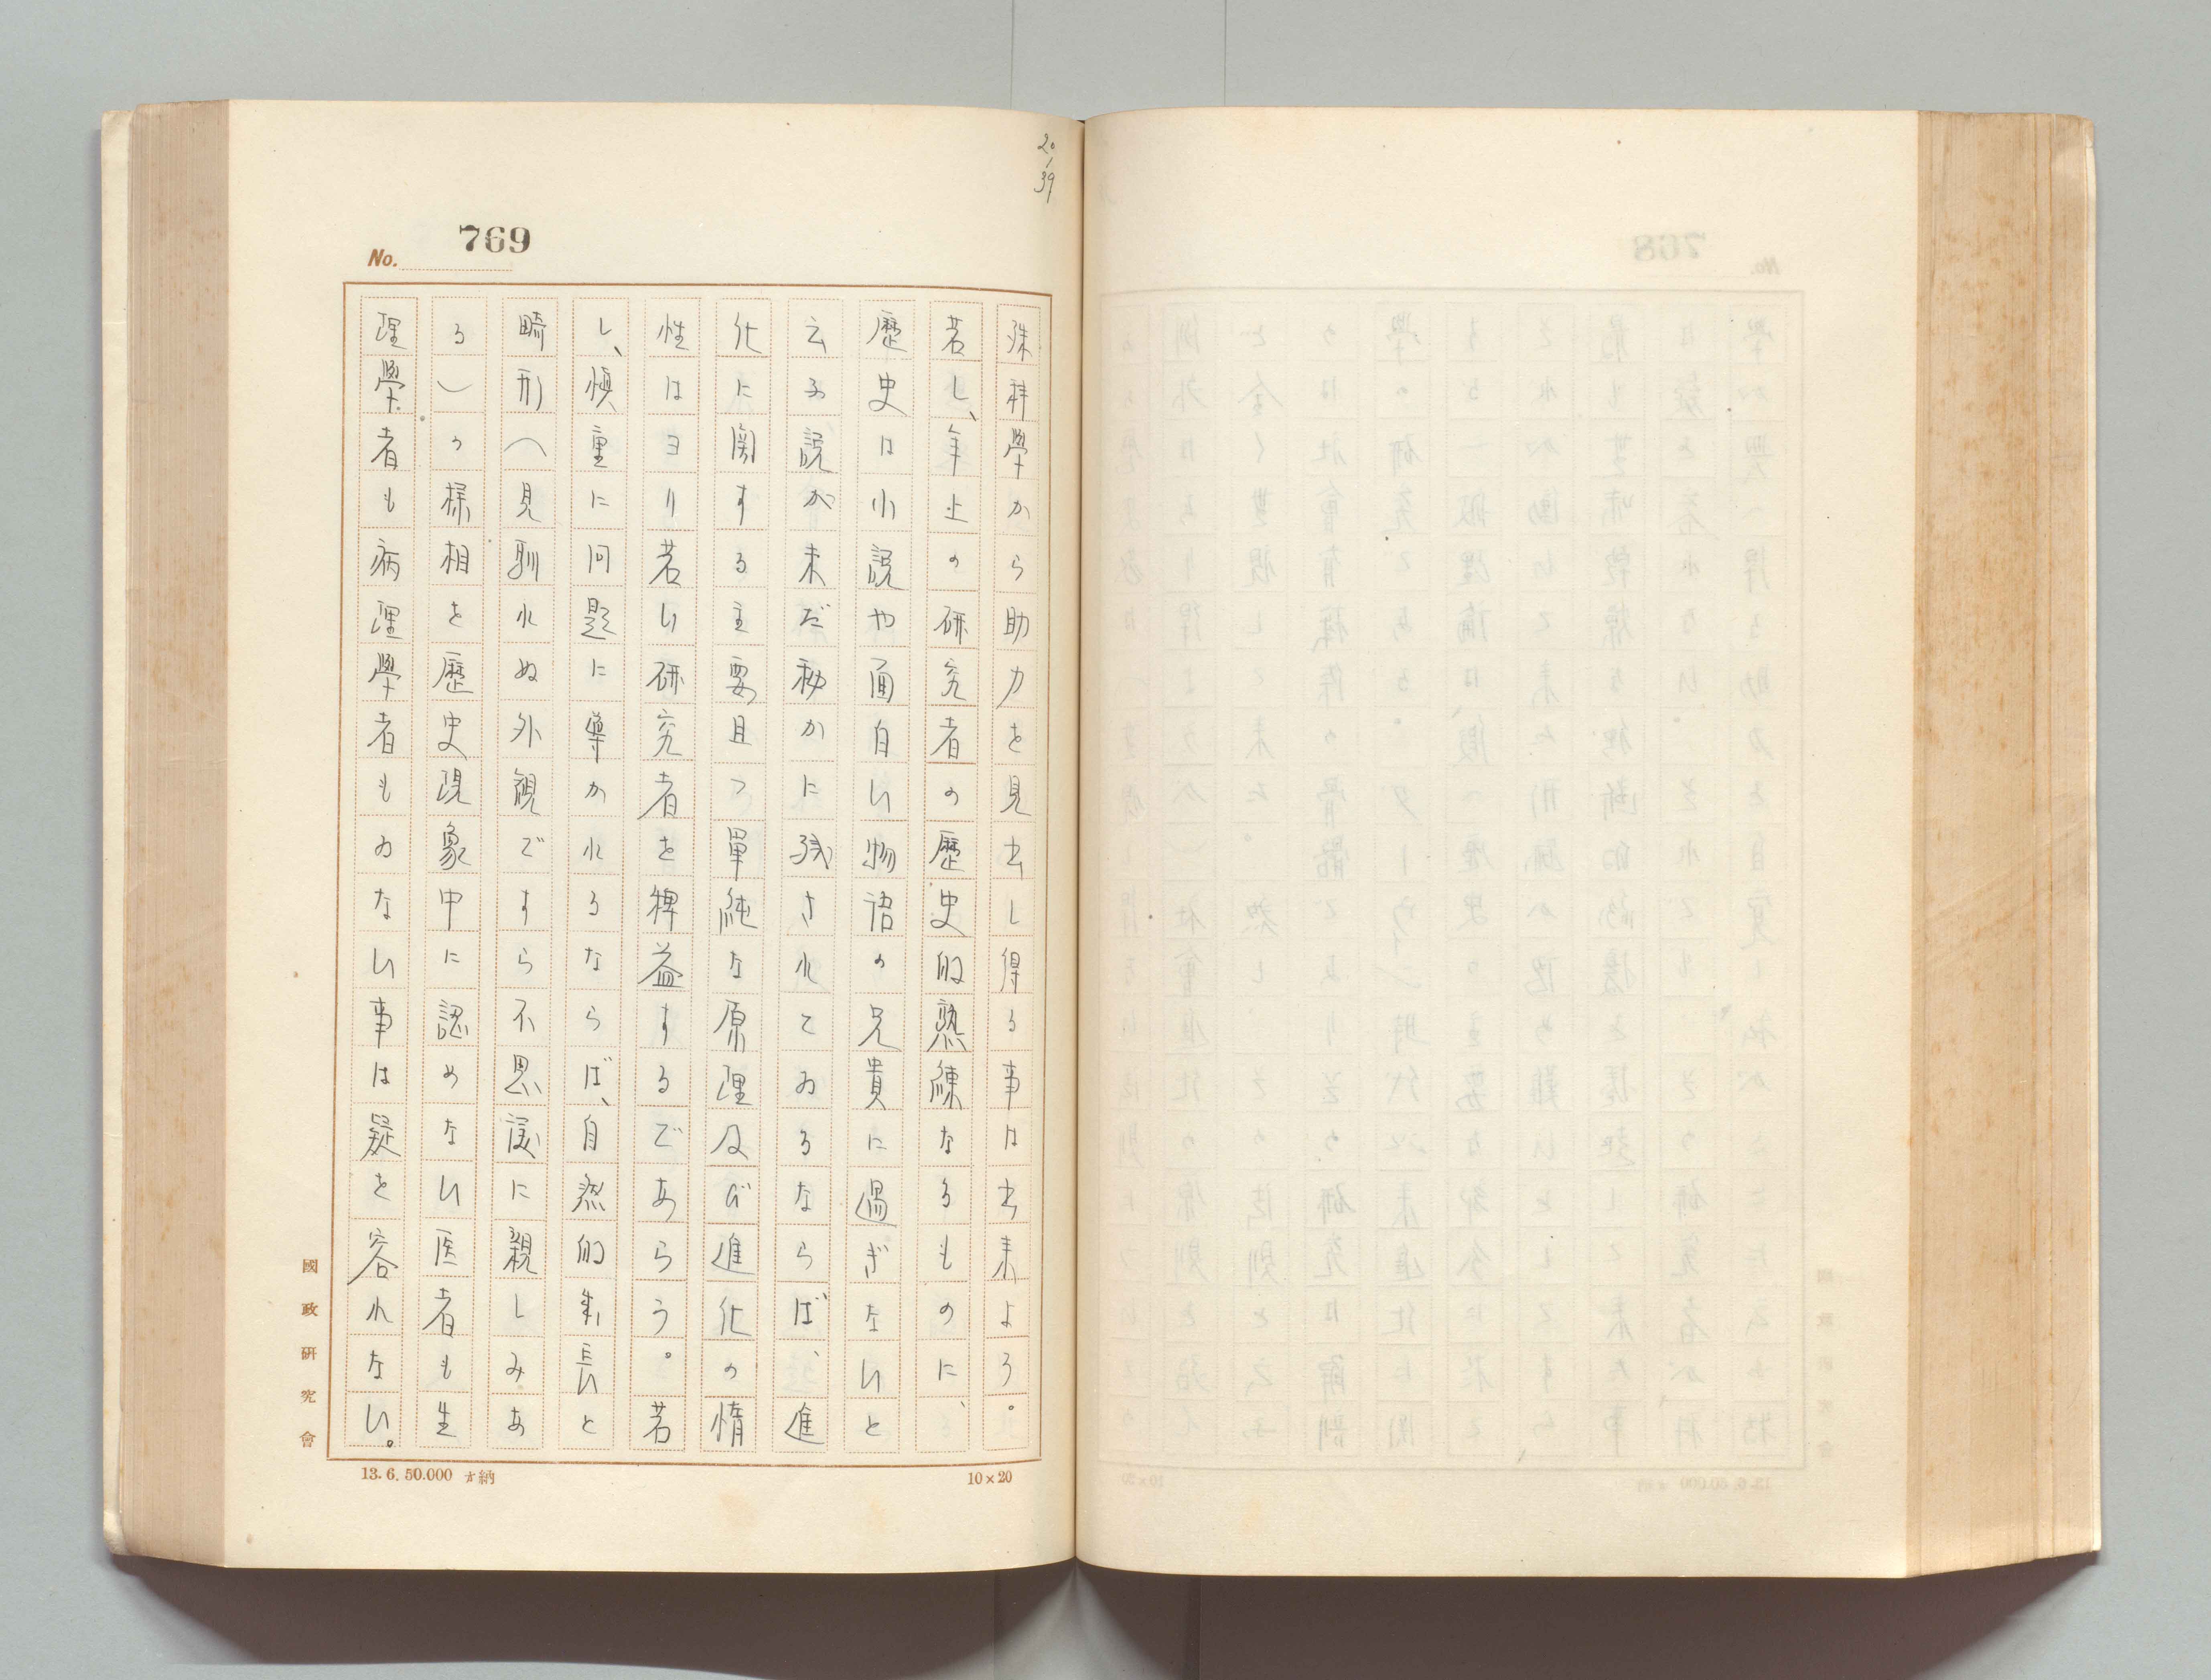 20/39
No. 769
殊科學から助力を見出し得る事は出来よう。
若し、年上の研究者の歴史的熟練なるものに、
歴史は小説や面白い物語の兄貴に過ぎないと
云ふ説が未だ秘かに残されてゐるならば、進
化に関する主要且つ単純な原理及び進化の惰
性はヨリ若い研究者を裨益するであらう。若
し、慎重に問題に導かれるならば、自然的生長と
畸形（見馴れぬ外観ですら不思議に親しみあ
る）の様相を歴史現象中に認めない医者も生
理學者も病理學者もゐない事は疑を容れない。
國政研究會
13.6.50.000 納
10×20